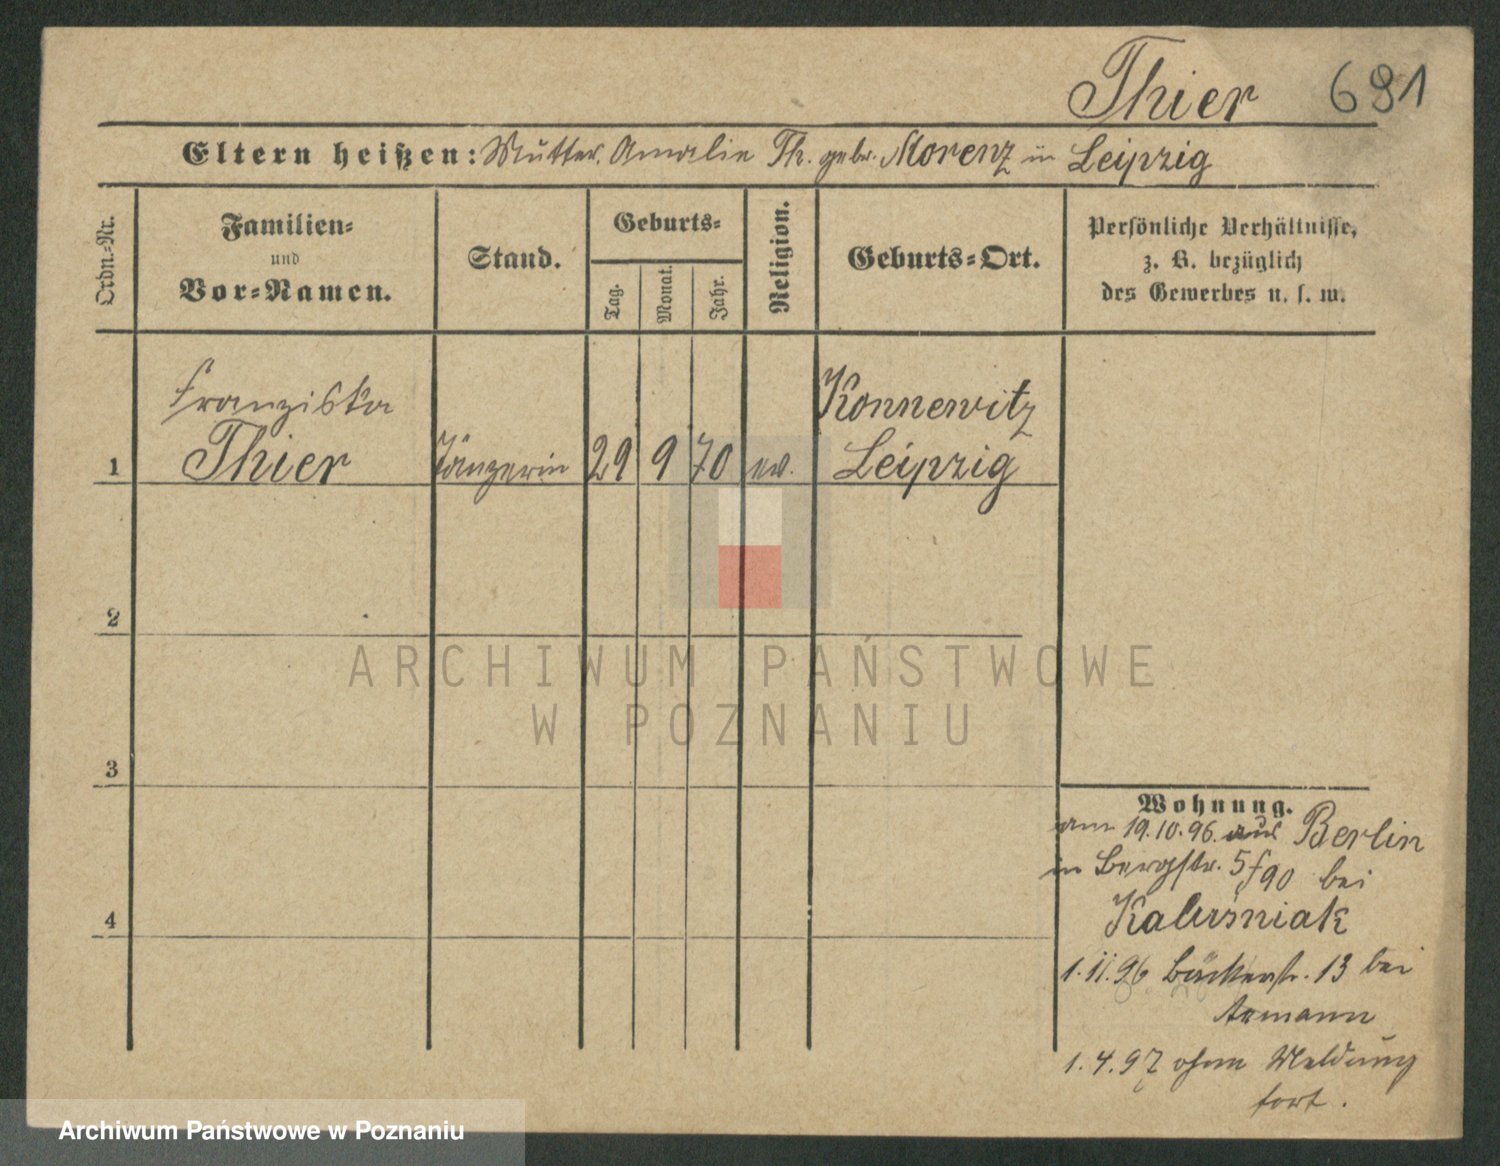 Thier 691
Eltern heißen: Mutter, Amalie Th. gebr. Morenz in Leipzig
Ordn.-Nr.
Familien-
und
Vor-Namen.
Stand.
Geburts-
Tag.
Monat.
Jahr.
Religion.
Geburts-Ort.
Persönliche Verhältnisse,
z. B. bezüglich
des Gewerbes u. s. w.
Franziska Konnewitz
1 Thier Tänzerin 29 9 70 ev. Leipzig
2
ARCHIWUM PAŃSTWOWE
W POZNANIU
3
Wohnung.
am 19.10.96. aus Berlin
in Bergstr. 5 f 90 bei
4 Kalusniak
1.11.96 Bäckerstr. 13 bei
1.4.97 ohne Meldung
fort.
Archiwum Państwowe w Poznaniu